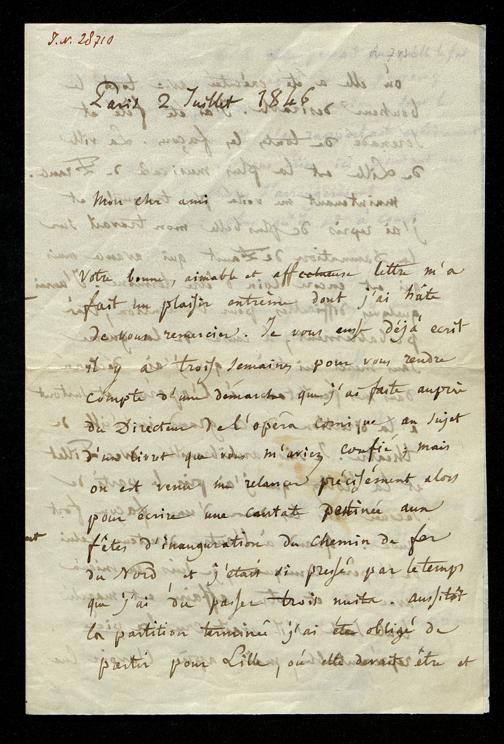 I.N. 28710
Paris 2 Juillet 1846
Mon cher ami
Votre bonne, aimable et affectueuse lettre m'a
fait un plaisir extrême dont j'ai hâte
de vous remercier. Je vous eusse déjà écrit
il y a trois semaines pour vous rendre
compte d'une démarche que j'ai faite auprès
du Directeur de l'opéra comique au sujet
d'un livret que vous m'aviez confié; mais
on est venu me relancer précisément alors
pour écrire une cantate destinée aux
fêtes d'inauguration du chemin de fer
du Nord et j'étais si pressé par le temps
que j'ai dû passer trois nuits. aussitôt
la partition terminée j'ai été obligé de
partir pour Lille, où elle devait être et